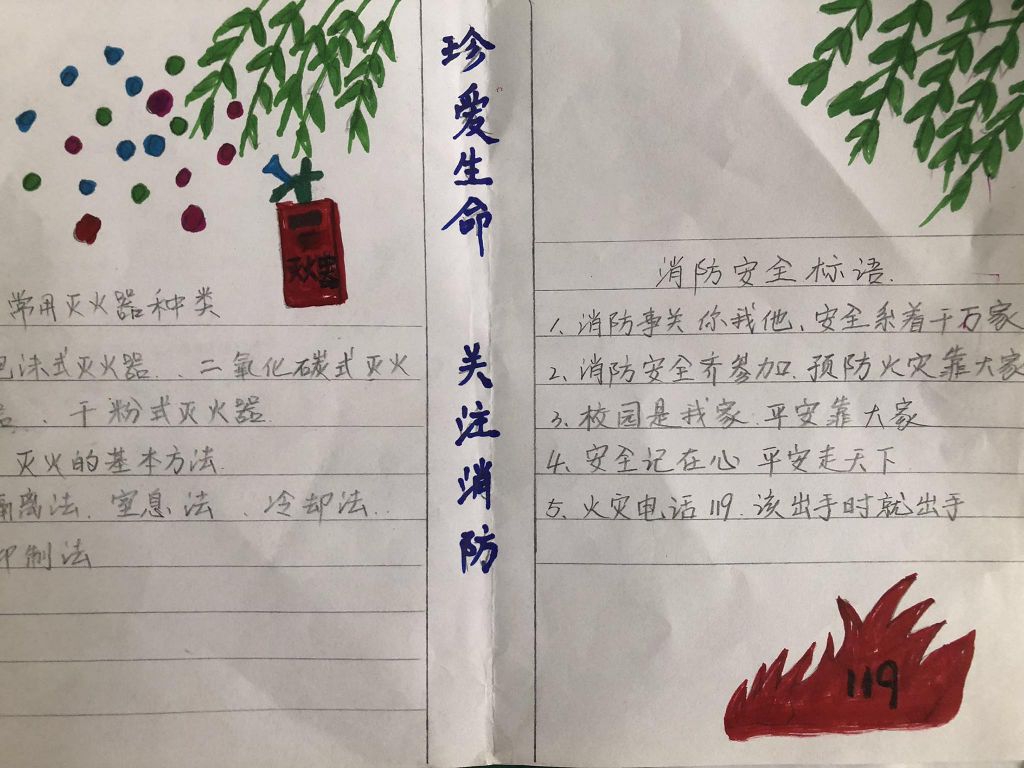 灭火器
常用灭火器种类
泡沫式灭火器、二氧化碳式灭火
器、干粉式灭火器
灭火的基本方法
隔离法、窒息法、冷却法、
抑制法
珍爱生命 关注消防
消防安全标语
1、消防事关你我他、安全系着千万家
2、消防安全齐参加、预防火灾靠大家
3、校园是我家 平安靠大家
4、安全记在心 平安走天下
5、火灾电话119 该出手时就出手
119